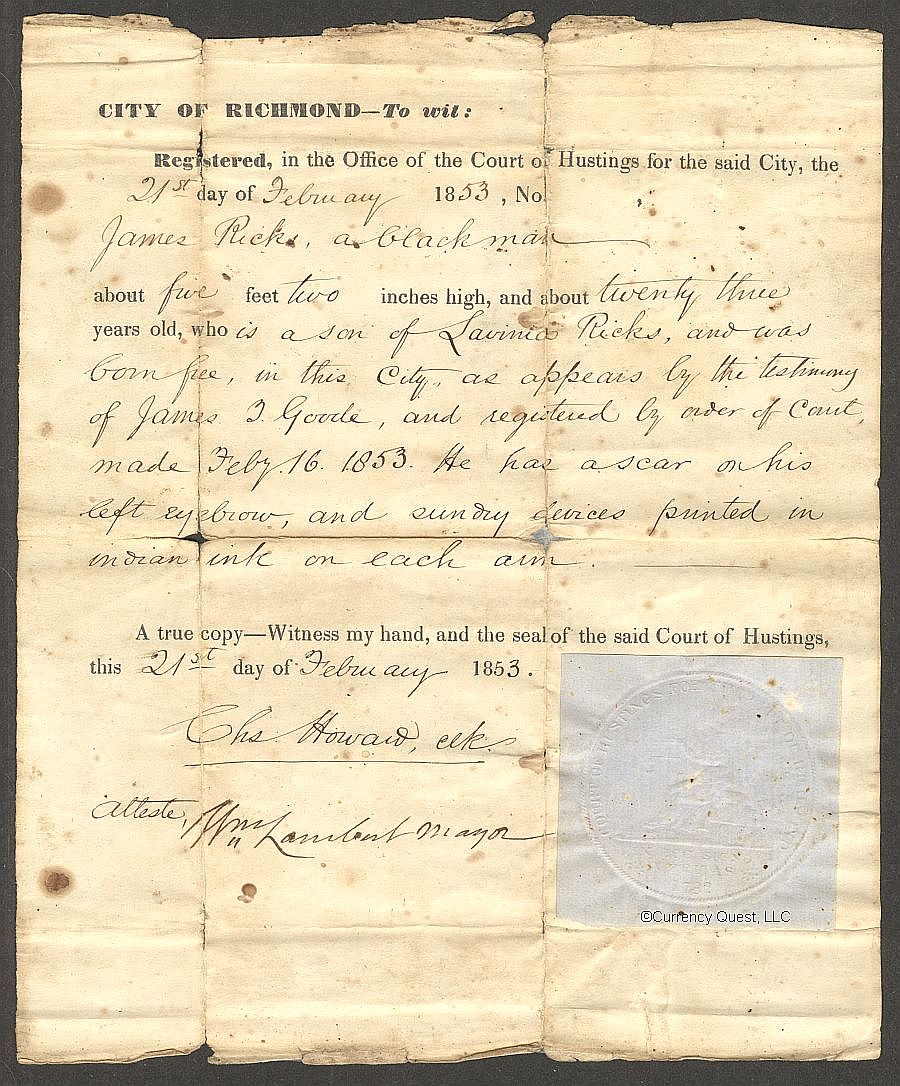 CITY OF RICHMOND—To wit:
Registered, in the Office of the Court of Hustings for the said City, the
21st day of February 1853, No. ,
James Ricks, a black man
about five feet two inches high, and about twenty three
years old, who is a son of Lavinia Ricks, and was
born free, in this City, as appears by the testimony
of James T. Goode, and registered by order of Court,
made Feby. 16. 1853. He has a scar on his
left eyebrow, and sundry devices printed in
indian ink on each arm.
A true copy—Witness my hand, and the seal of the said Court of Hustings,
this 21st day of February 1853.
Chs Howard, clk.
Atteste,
Wm Lambert Mayor
©Currency Quest, LLC